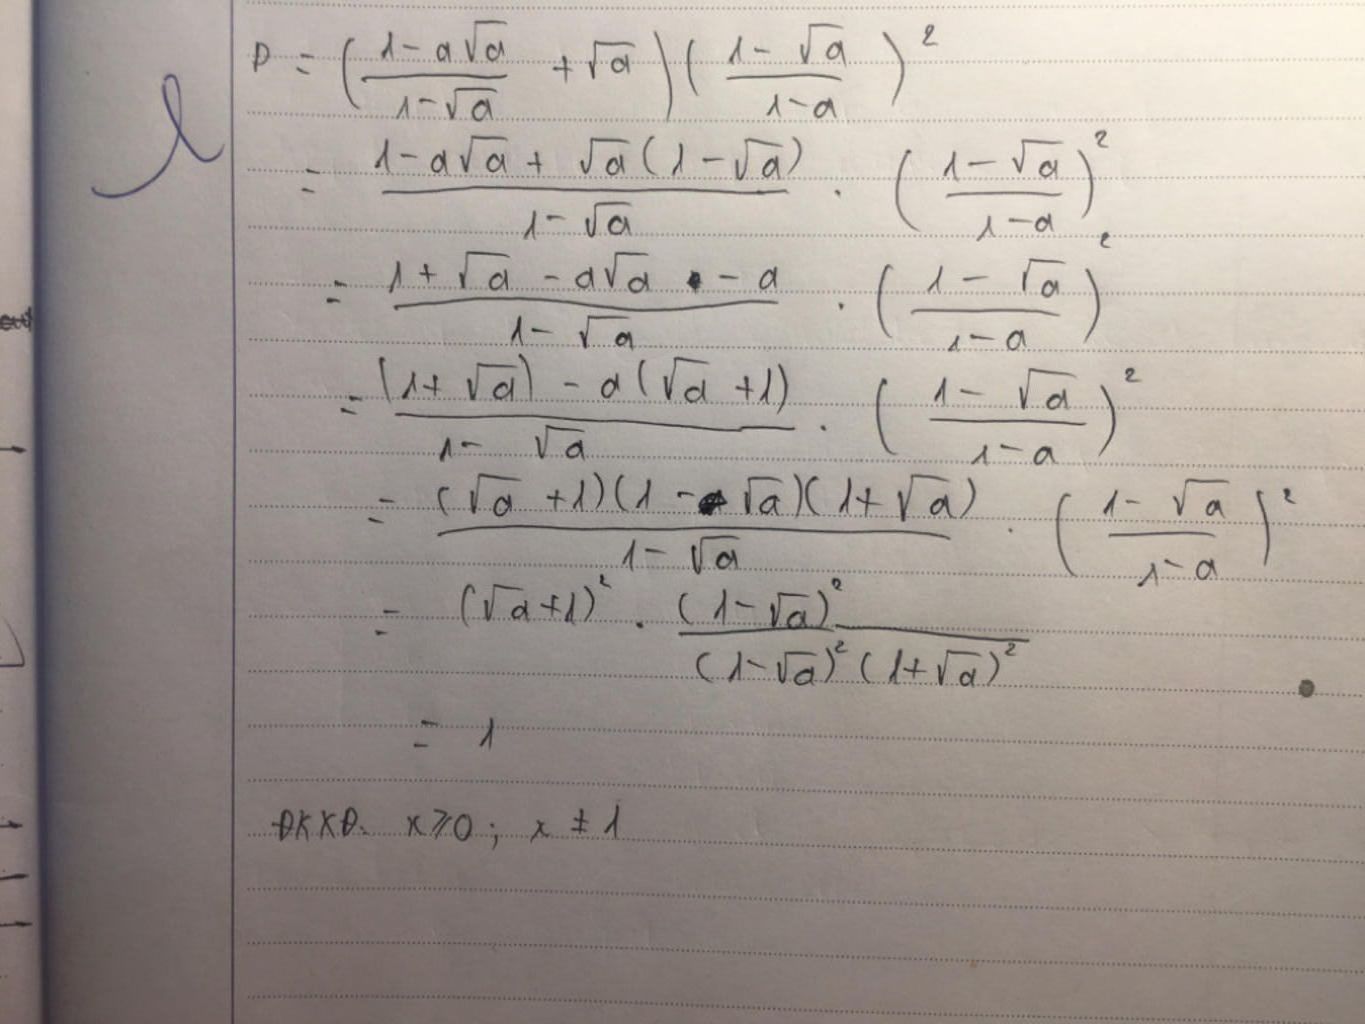 P = ( (1 - a√a)/(1 - √a) + √a ) ( (1 - √a)/(1 - a) )²
= (1 - a√a + √a(1 - √a))/(1 - √a) . ( (1 - √a)/(1 - a) )²
= (1 + √a - a√a - a)/(1 - √a) . ( (1 - √a)/(1 - a) )²
= ((1 + √a) - a(√a + 1))/(1 - √a) . ( (1 - √a)/(1 - a) )²
= ((√a + 1)(1 - √a)(1 + √a))/(1 - √a) . ( (1 - √a)/(1 - a) )²
= (√a + 1)² . (1 - √a)²/((1 - √a)² (1 + √a)²)
= 1
ĐKXĐ. x ≥ 0 ; x ≠ 1